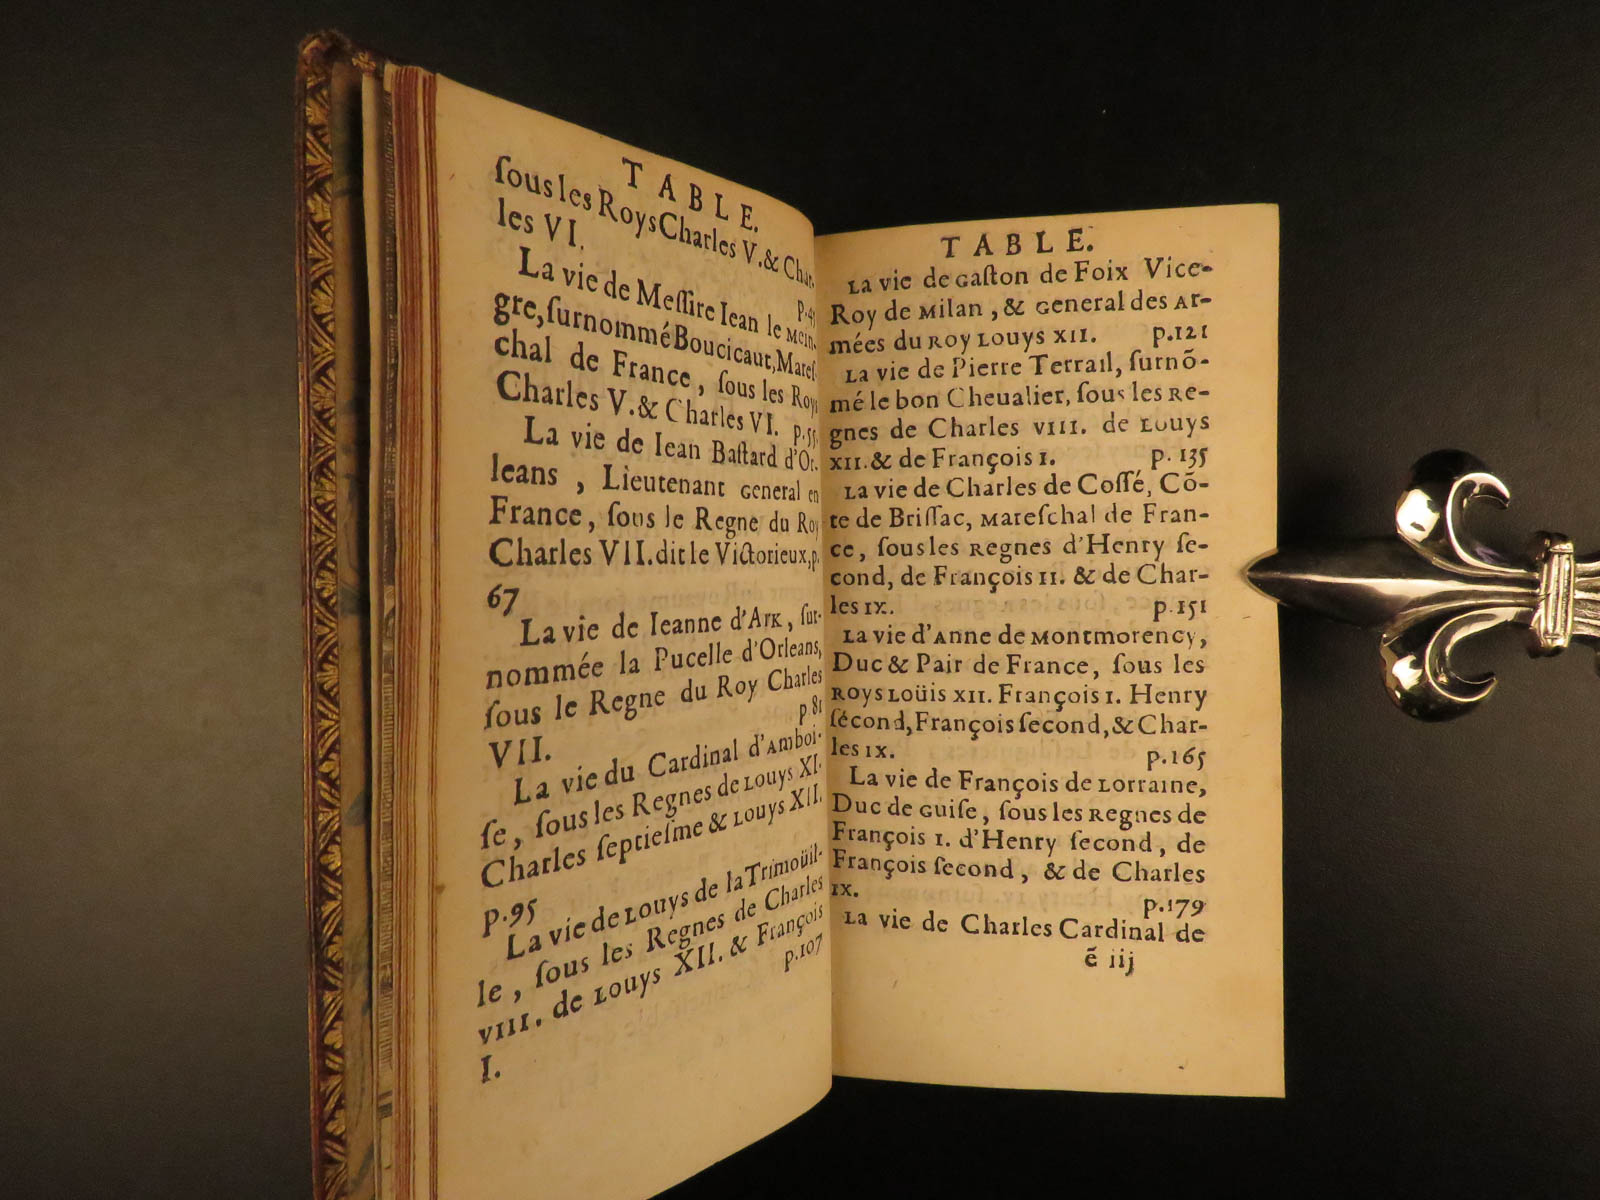 TABLE.
ſous les Roys Charles V. & Char-
les VI.
La vie de Meſſire Iean le Mein-
gre, ſurnommé Boucicaut, Mareſ-
chal de France, ſous les Roys
Charles V. & Charles VI. p.55.
La vie de Iean Baſtard d'Or-
leans, Lieutenant General en
France, ſous le Regne du Roy
Charles VII. dit le Victorieux, p.
67
La vie de Ieanne d'Ark, ſur-
nommée la Pucelle d'Orleans,
ſous le Regne du Roy Charles
VII. p 81
La vie du Cardinal d'Amboi-
ſe, ſous les Regnes de Louys XI.
Charles ſeptieſme & Louys XII.
p.95
La vie de Louys de la Trimoüil-
le, ſous les Regnes de Charles
VIII. de Louys XII. & François
I. p.107
TABLE.
La vie de Gaſton de Foix Vice-
Roy de Milan, & General des Ar-
mées du Roy Louys XII. p.121
La vie de Pierre Terrail, ſurnõ-
mé le bon Cheualier, ſous les Re-
gnes de Charles VIII. de Louys
XII. & de François I. p. 135
La vie de Charles de Coſſé, Cõ-
te de Briſſac, Mareſchal de Fran-
ce, ſous les Regnes d'Henry ſe-
cond, de François II. & de Char-
les IX. p.151
La vie d'Anne de Montmorency,
Duc & Pair de France, ſous les
Roys Loüis XII. François I. Henry
ſécond, François ſecond, & Char-
les IX. p.165
La vie de François de Lorraine,
Duc de Guiſe, ſous les Regnes de
François I. d'Henry ſecond, de
François ſecond, & de Charles
IX. p.179
La vie de Charles Cardinal de
ẽ iij